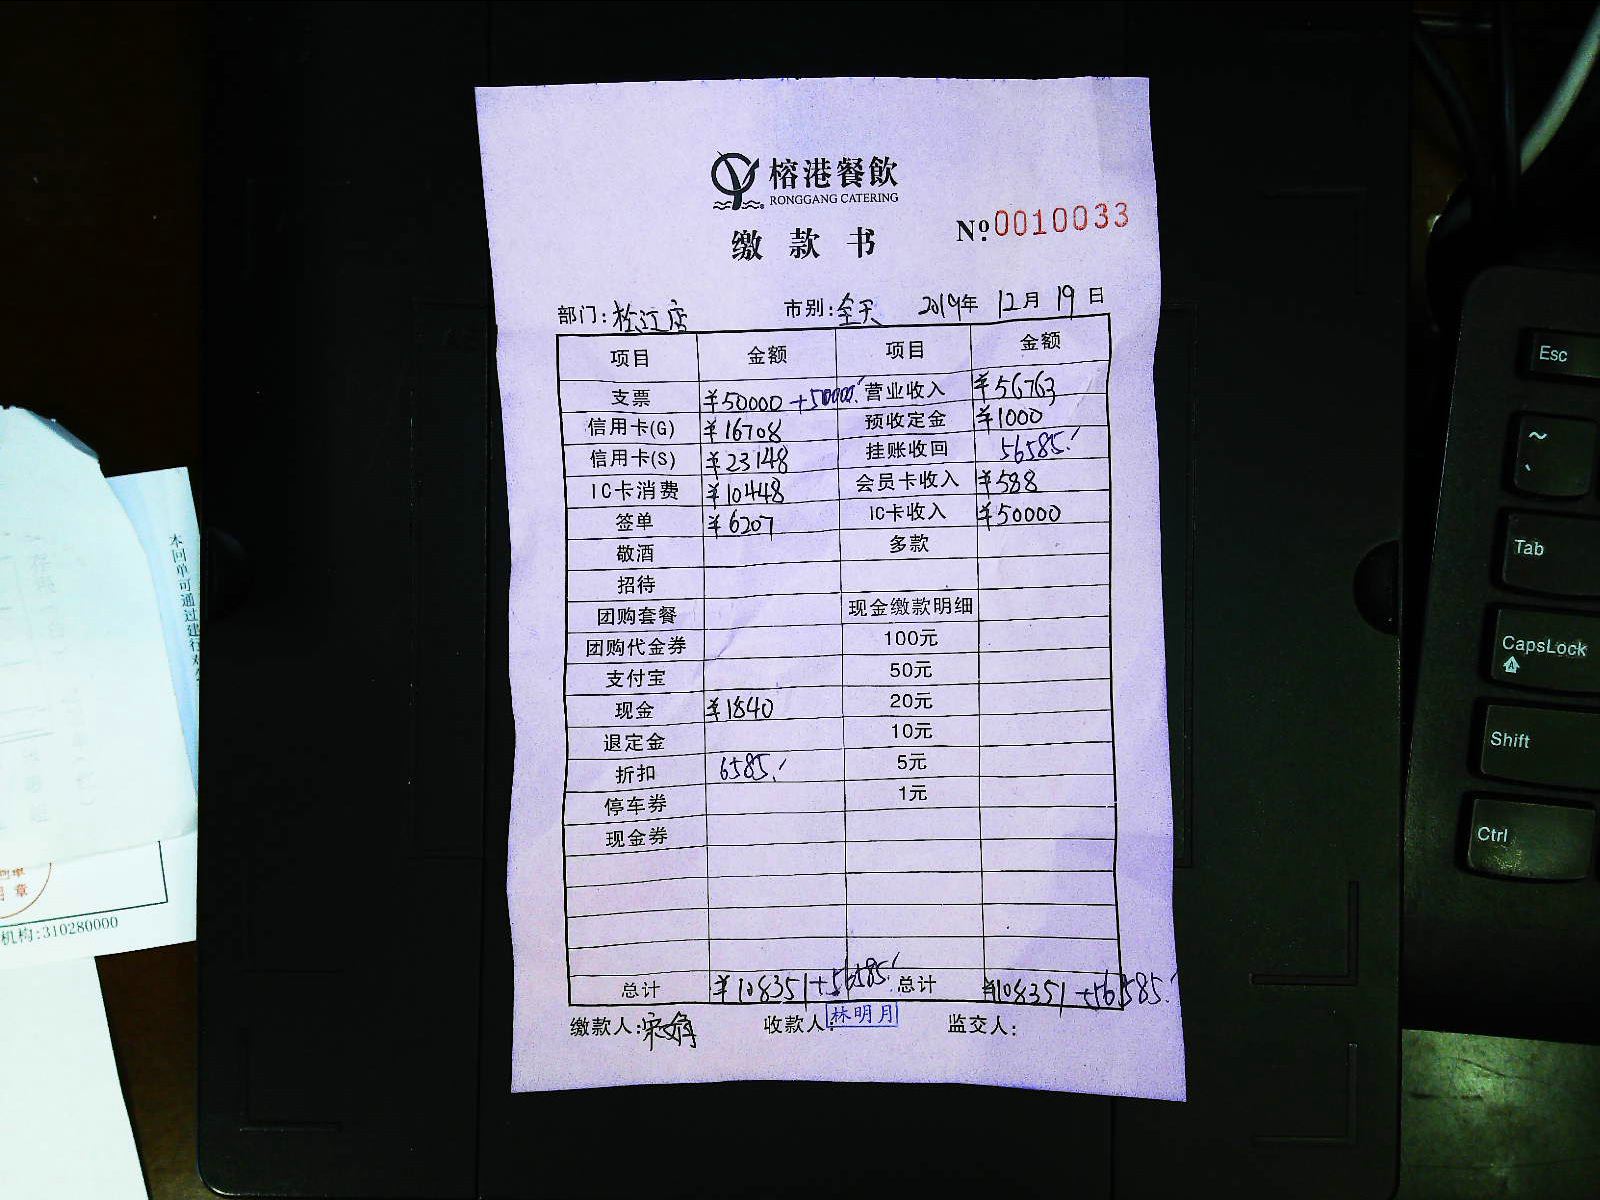 榕港餐飲
RONGGANG CATERING
缴款书
Nº.0010033
部门:松江店 市别:全天 2019年 12月 19日
项目 金额 项目 金额
支票 ¥50000+50000! 营业收入 ¥56763
信用卡(G) ¥16708 预收定金 ¥1000
信用卡(S) ¥23148 挂账收回 56585!
IC卡消费 ¥10448 会员卡收入 ¥588
签单 ¥6207 IC卡收入 ¥50000
敬酒 多款
招待
团购套餐 现金缴款明细
团购代金券 100元
支付宝 50元
现金 ¥1840 20元
退定金 10元
折扣 6585! 5元
停车券 1元
现金券
总计 ¥108351+56585! 总计 ¥108351+56585!
缴款人: 收款人:林明月 监交人:
本回单可通过建行
机构:310280000
Esc
~
Tab
CapsLock
Shift
Ctrl